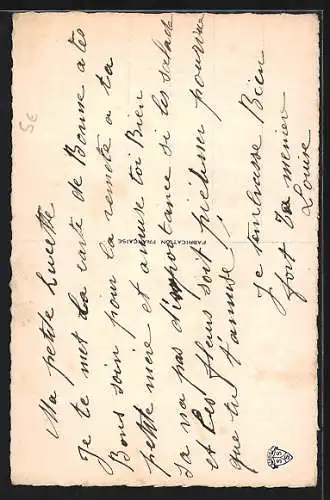 Ma petite Lucette
Je te met la carte de Bonne a tes
Bons soin pour la remete a ta
petite mère et amuse toi Bien
sa na pas d'importance si les salade
et les fleurs soit piétiner pourvue
que tu t'amuse!
Je tembrasse Bien
fort Ta
Louise
FABRICATION FRANÇAISE